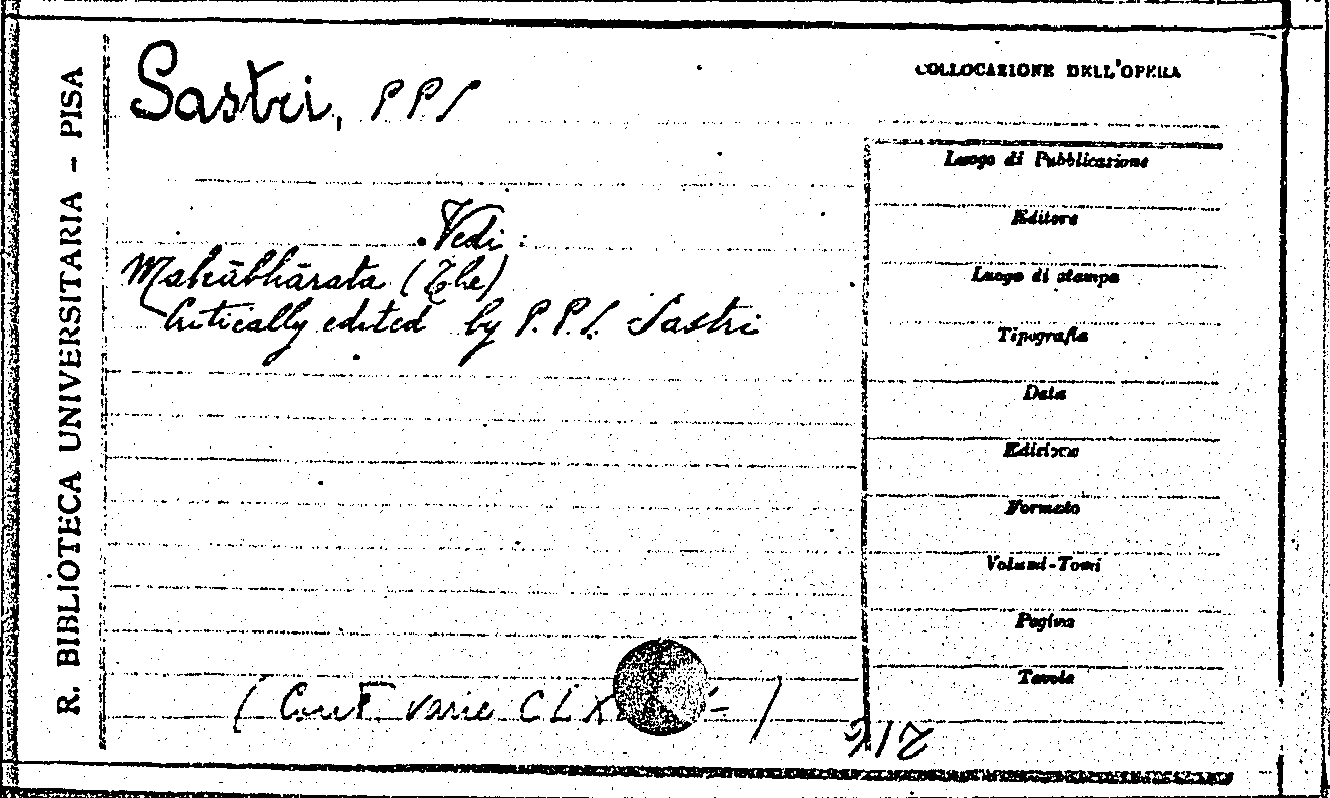 R. BIBLIOTECA UNIVERSITARIA – PISA
Sastri, P P S
Vedi:
Mahābhārata (The)
Critically edited by P.P.S. Sastri
COLLOCAZIONE DELL'OPERA
Luogo di Pubblicazione
Editore
Luogo di stampa
Tipografia
Data
Edizione
Formato
Volumi-Tomi
Pagina
Tavole
( Cont varie CLX )